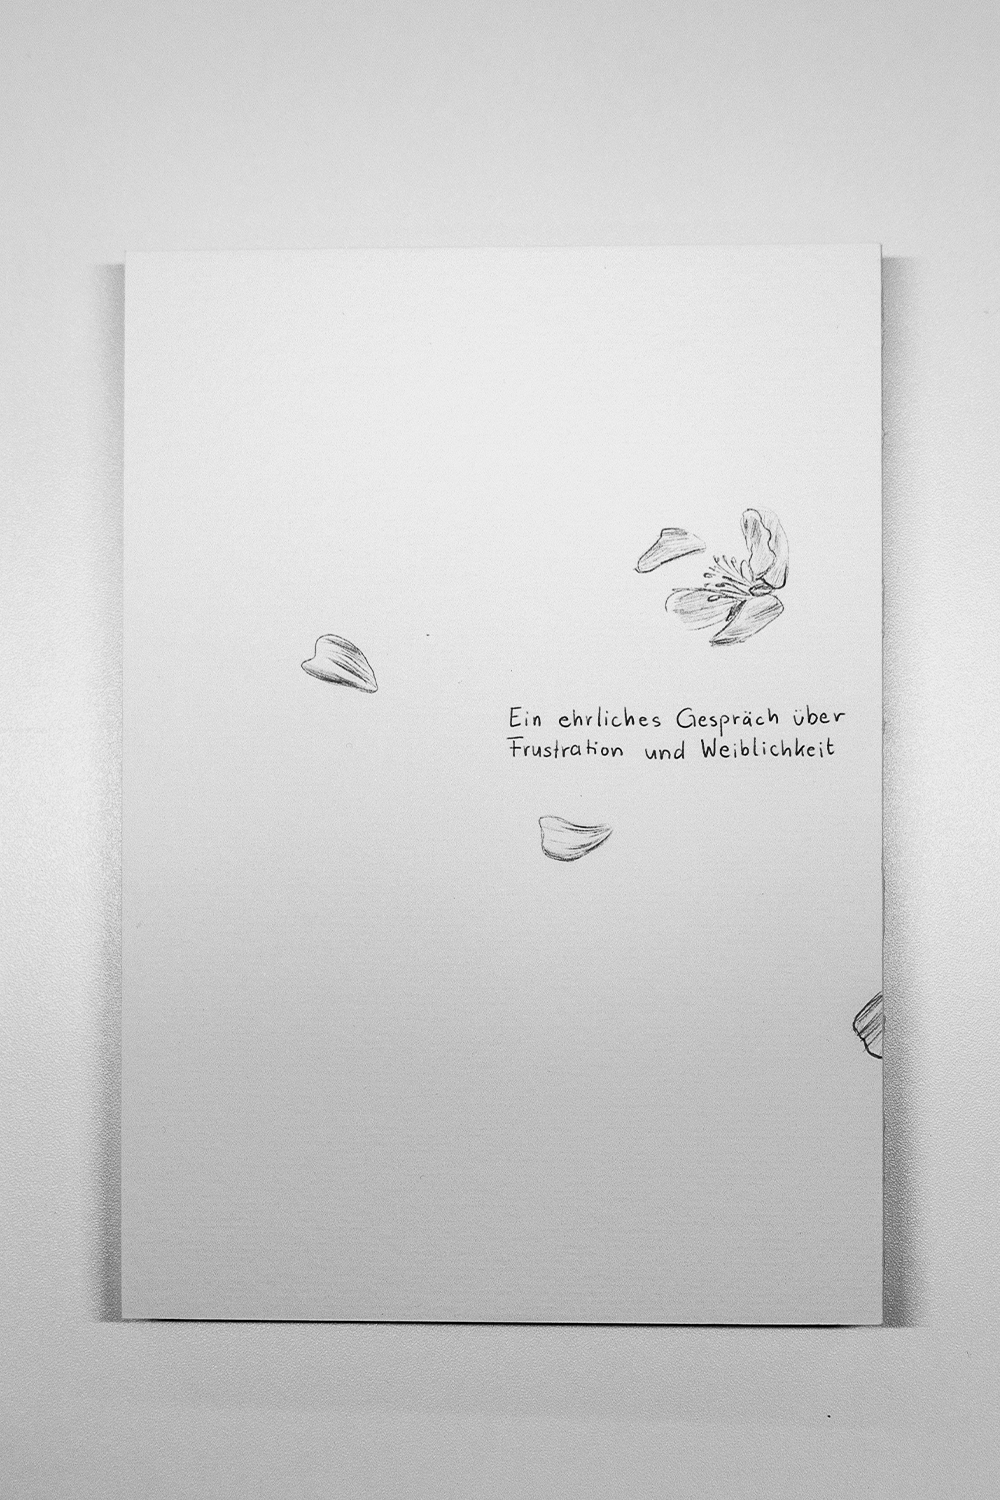 Ein ehrliches Gespräch über
Frustration und Weiblichkeit